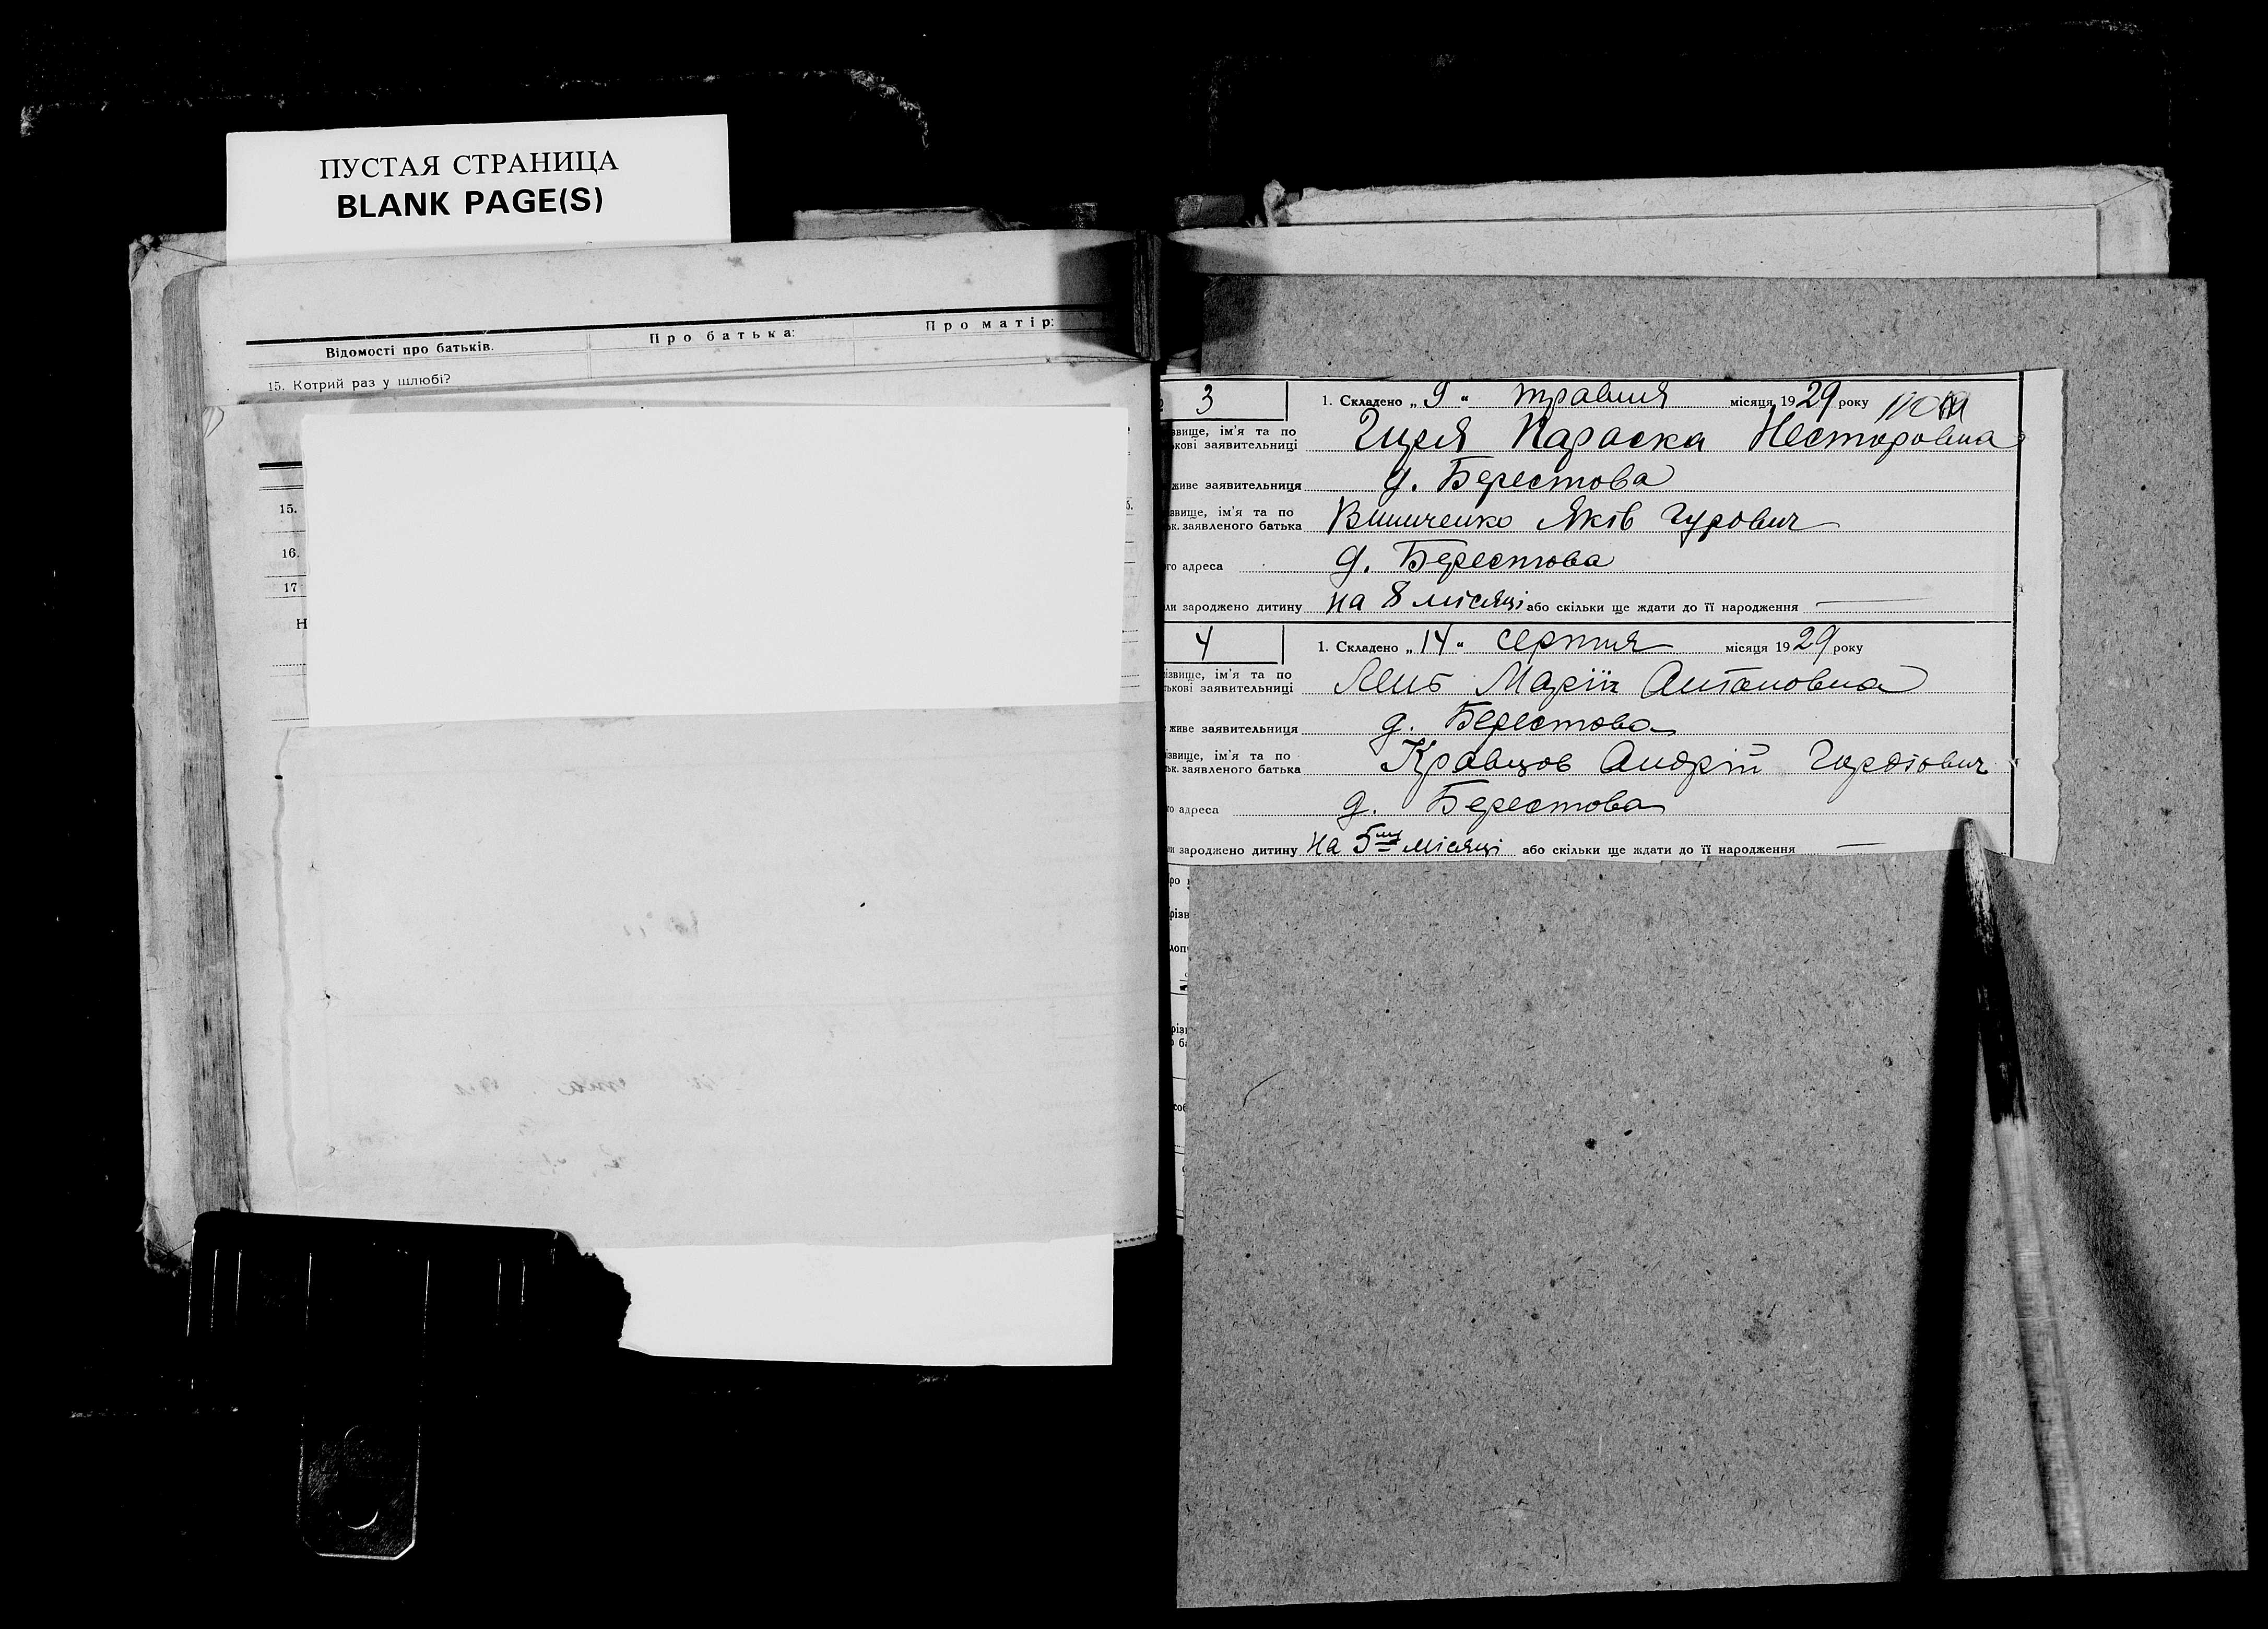 ПУСТАЯ СТРАНИЦА
BLANK PAGE(S)
Відомості про батьків.
Про батька:
Про матір:
15. Котрий раз у шлюбі?
15.
16.
17
Н
3
1. Складено „ 9 “ травня місяця 1929 року
звище, ім'я та по
кові заявительниці
Параска Несторовна
живе заявительниця
д. Берестова
звище, ім'я та по
ьк. заявленого батька
Винниченко Яків Гурович
го адреса
д. Берестова
ли зароджено дитину на 8 місяці або скільки ще ждати до її народження —
4
1. Складено „ 14 “ серпня місяця 1929 року
ізвище, ім'я та по
ькові заявительниці
Марія Антоновна
живе заявительниця
д. Берестова
ізвище, ім'я та по
ьк. заявленого батька
Кравцов Андрій
го адреса
д. Берестова
ли зароджено дитину на 5му місяці або скільки ще ждати до її народження —